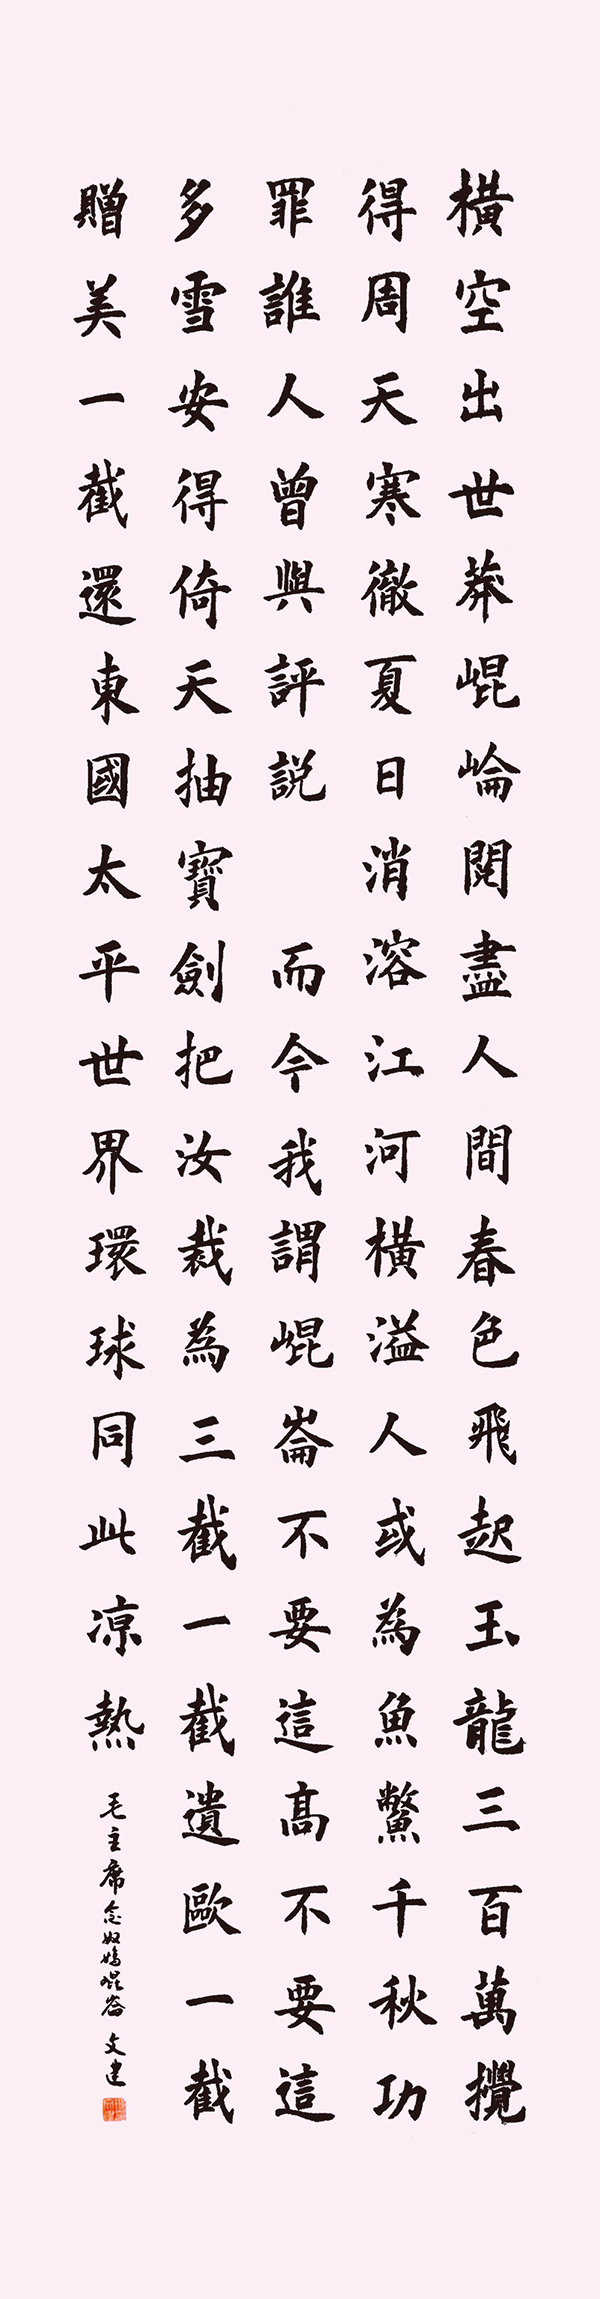 橫空出世莽崐崘閱盡人間春色飛起玉龍三百萬攪
得周天寒徹夏日消溶江河橫溢人或為魚鱉千秋功
罪誰人曾與評説 而今我謂崐崙不要這高不要這
多雪安得倚天抽寶劍把汝裁為三截一截遺歐一截
贈美一截還東國太平世界環球同此涼熱
毛主席念奴嬌崐崙 文建